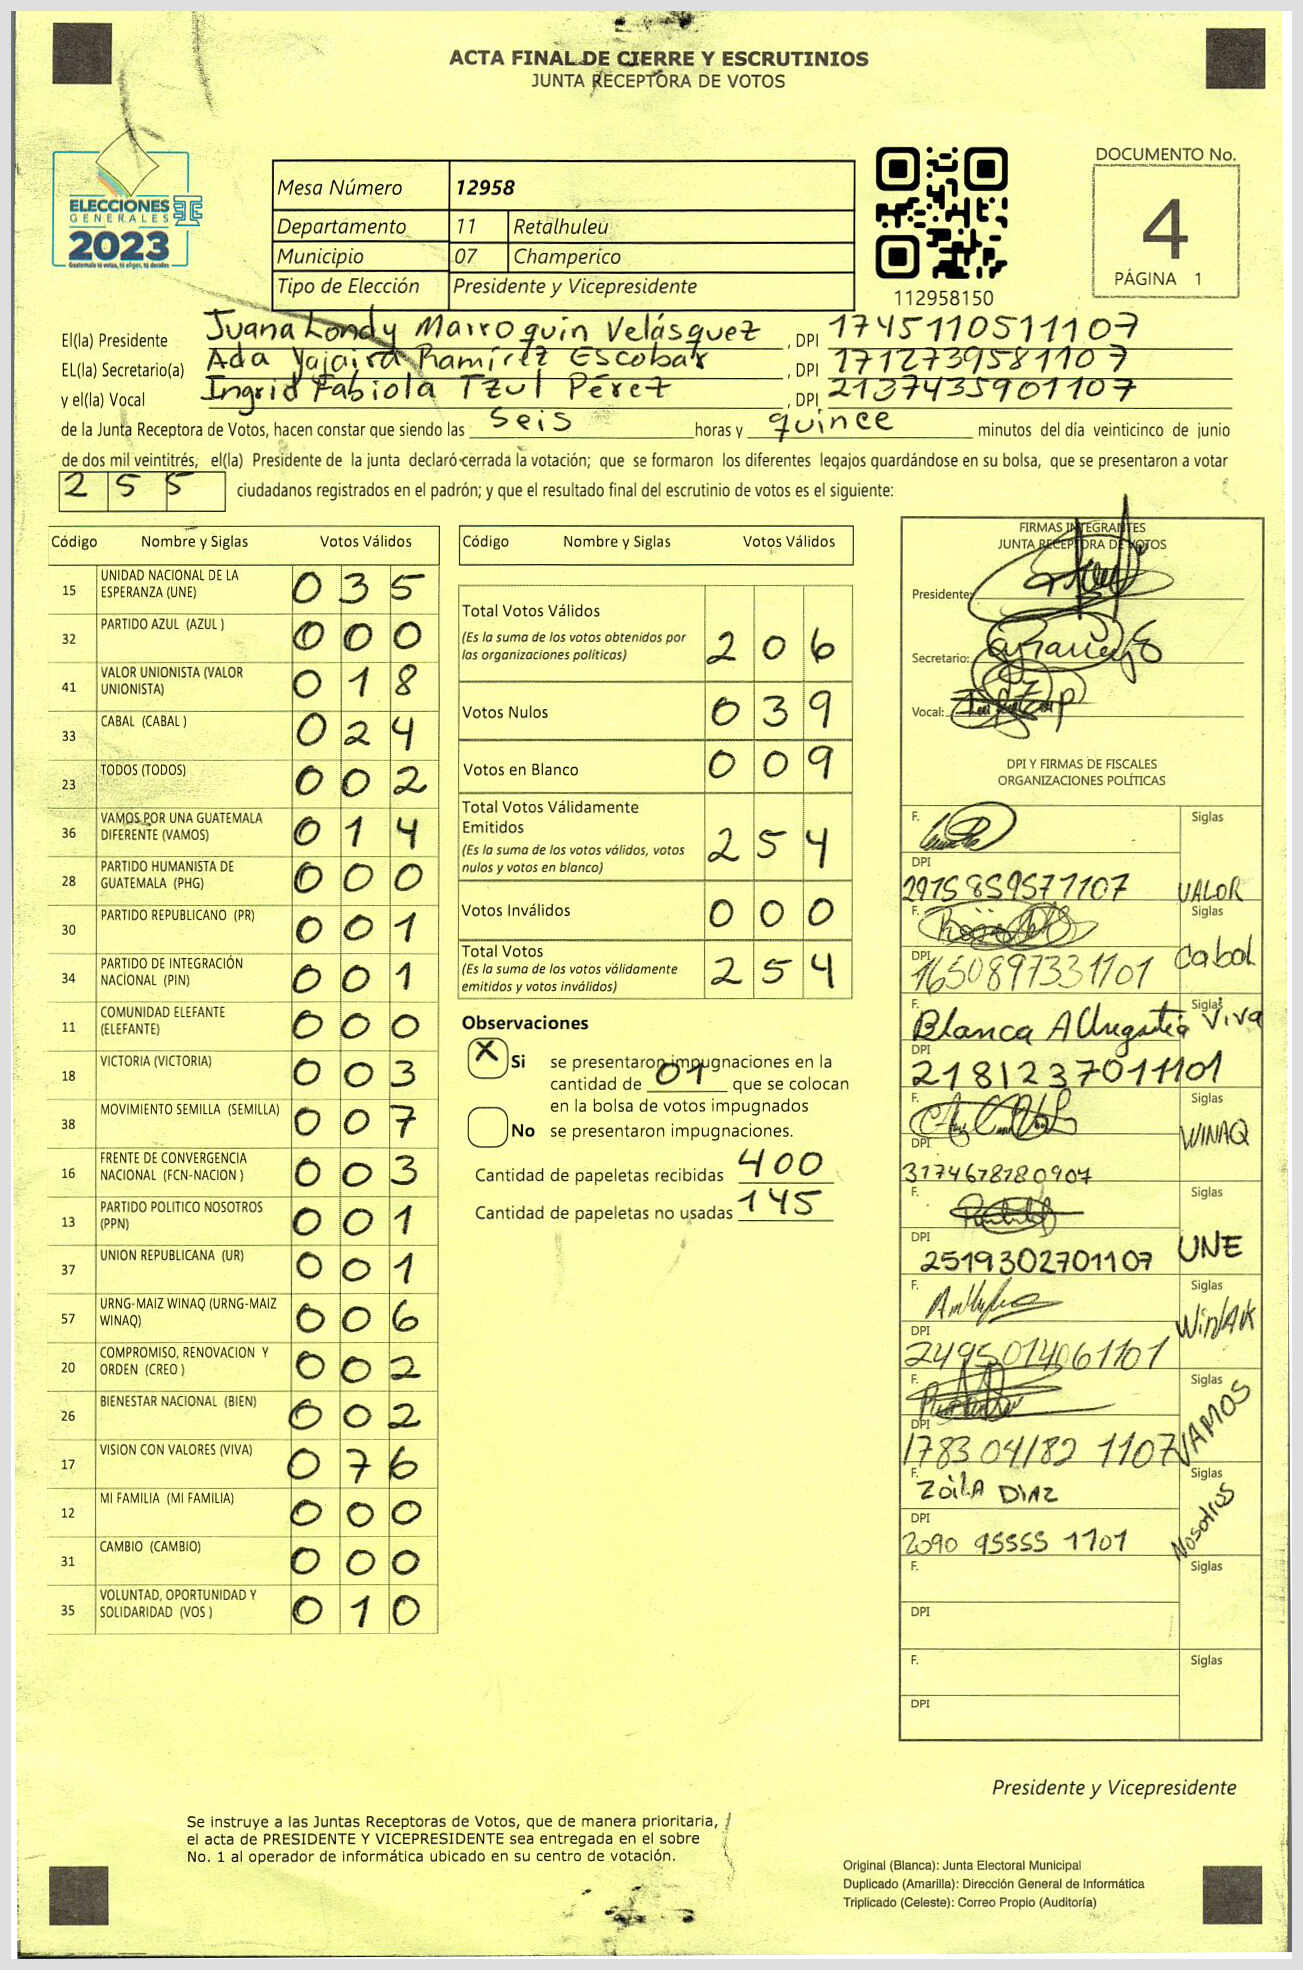 ACTA FINAL DE CIERRE Y ESCRUTINIOS
JUNTA RECEPTORA DE VOTOS
ELECCIONES
GENERALES
2023
Guatemala tú votas, tú eliges, tú decides
Mesa Número 12958
Departamento 11 Retalhuleu
Municipio 07 Champerico
Tipo de Elección Presidente y Vicepresidente
112958150
DOCUMENTO No.
4
PÁGINA 1
El(la) Presidente Juana Londy Marroquin Velásquez, DPI 1745110511107
EL(la) Secretario(a) Ada Yajaira Ramírez Escobar, DPI 1712739581107
y el(la) Vocal Ingrid Fabiola Tzul Pérez, DPI 2137435901107
de la Junta Receptora de Votos, hacen constar que siendo las seis horas y quince minutos del día veinticinco de junio
de dos mil veintitrés, el(la) Presidente de la junta declaró cerrada la votación; que se formaron los diferentes legajos guardándose en su bolsa, que se presentaron a votar
255 ciudadanos registrados en el padrón; y que el resultado final del escrutinio de votos es el siguiente:
Código Nombre y Siglas Votos Válidos
15 UNIDAD NACIONAL DE LA ESPERANZA (UNE) 035
32 PARTIDO AZUL (AZUL ) 000
41 VALOR UNIONISTA (VALOR UNIONISTA) 018
33 CABAL (CABAL ) 024
23 TODOS (TODOS) 002
36 VAMOS POR UNA GUATEMALA DIFERENTE (VAMOS) 014
28 PARTIDO HUMANISTA DE GUATEMALA (PHG) 000
30 PARTIDO REPUBLICANO (PR) 001
34 PARTIDO DE INTEGRACIÓN NACIONAL (PIN) 001
11 COMUNIDAD ELEFANTE (ELEFANTE) 000
18 VICTORIA (VICTORIA) 003
38 MOVIMIENTO SEMILLA (SEMILLA) 007
16 FRENTE DE CONVERGENCIA NACIONAL (FCN-NACION ) 003
13 PARTIDO POLITICO NOSOTROS (PPN) 001
37 UNION REPUBLICANA (UR) 001
57 URNG-MAIZ WINAQ (URNG-MAIZ WINAQ) 006
20 COMPROMISO, RENOVACION Y ORDEN (CREO ) 002
26 BIENESTAR NACIONAL (BIEN) 002
17 VISION CON VALORES (VIVA) 076
12 MI FAMILIA (MI FAMILIA) 000
31 CAMBIO (CAMBIO) 000
35 VOLUNTAD, OPORTUNIDAD Y SOLIDARIDAD (VOS ) 010
Código Nombre y Siglas Votos Válidos
Total Votos Válidos
(Es la suma de los votos obtenidos por
las organizaciones políticas) 206
Votos Nulos 039
Votos en Blanco 009
Total Votos Válidamente
Emitidos
(Es la suma de los votos válidos, votos
nulos y votos en blanco) 254
Votos Inválidos 000
Total Votos
(Es la suma de los votos válidamente
emitidos y votos inválidos) 254
Observaciones
X Si se presentaron impugnaciones en la
cantidad de 01 que se colocan
en la bolsa de votos impugnados
No se presentaron impugnaciones.
Cantidad de papeletas recibidas 400
Cantidad de papeletas no usadas 145
FIRMAS INTEGRANTES
JUNTA RECEPTORA DE VOTOS
Presidente:
Secretario:
Vocal:
DPI Y FIRMAS DE FISCALES
ORGANIZACIONES POLÍTICAS
F. Siglas
DPI
2975859577107 VALOR
F. Siglas
DPI
1650897331101 Cabal
F. Siglas
Blanca Viva
DPI
2181237011101
F. Siglas
DPI WINAQ
3174678780907
F. Siglas
DPI
2519302701107 UNE
F. Siglas
DPI WinAk
2495014061101
F. Siglas
DPI
1783 04182 1107 VAMOS
F. Siglas
Zoila Diaz
DPI
2090 95555 1101 Nosotros
F. Siglas
DPI
F. Siglas
DPI
Presidente y Vicepresidente
Se instruye a las Juntas Receptoras de Votos, que de manera prioritaria,
el acta de PRESIDENTE Y VICEPRESIDENTE sea entregada en el sobre
No. 1 al operador de informática ubicado en su centro de votación.
Original (Blanca): Junta Electoral Municipal
Duplicado (Amarilla): Dirección General de Informática
Triplicado (Celeste): Correo Propio (Auditoría)